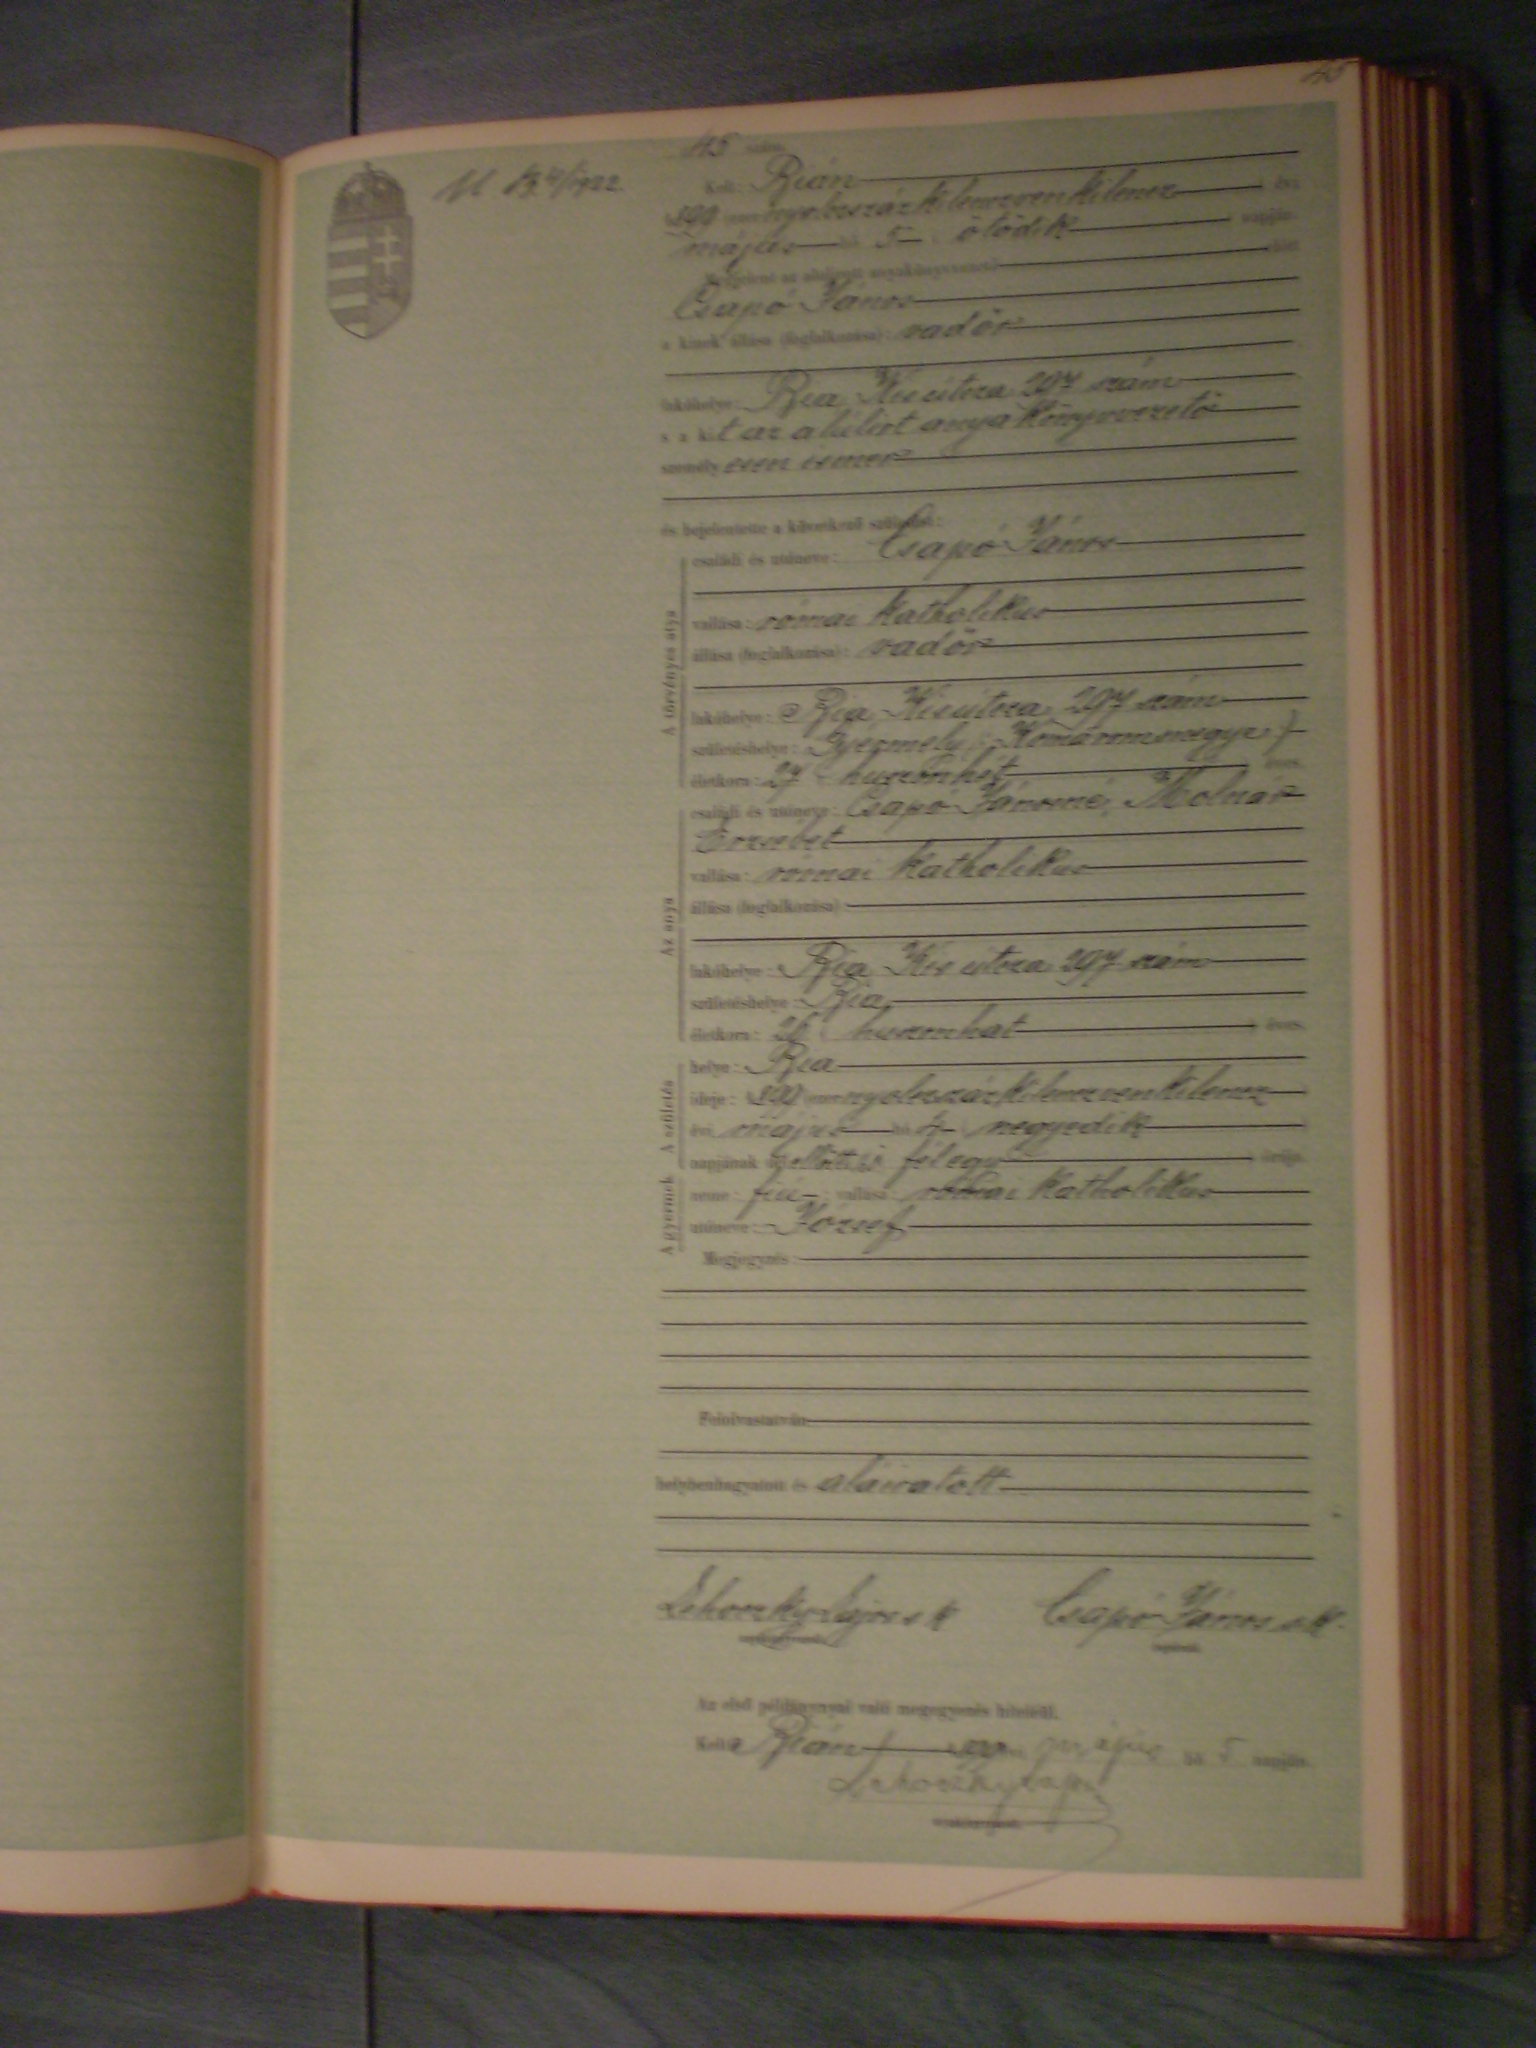 45
45 szám.
Kelt: Bián
1899 ezernyolczszázkilenczvenkilencz évi
május hó 5 ötödik napján
Megjelent az alulirott anyakönyvvezető előtt
Csapó János
a kinek állása (foglalkozása): vadőr
lakóhelye: Bia, Kisútcza 297 szám
s a kit az alúlirt anyakönyvvezető
személyesen ismer
és bejelentette a következő születést:
A törvényes atya
családi és utóneve: Csapó János
vallása: római katholikus
állása (foglalkozása): vadőr
lakóhelye: Bia, Kisútcza, 297 szám
születéshelye: (Komárommegye)
életkora: 27 huszonhét éves.
Az anya
családi és utóneve: Csapó Jánosné, Molnár
Erzsébet
vallása: római katholikus
állása (foglalkozása):
lakóhelye: Bia, Kis útcza 297 szám
születéshelye: Bia,
életkora: 26 huszonhat éves.
A születés
helye: Bia
ideje: 1899 ezernyolczszázkilenczvenkilencz
évi május hó 4 negyedik
napjának délelőtti fél egy órája.
A gyermek
neme: fiú; vallása: római katholikus
utóneve: József
Megjegyzés:
Felolvastatván
helybenhagyatott és aláíratott
Lehoczky Lajos s k Csapó János s. k.
Az első példánynyal való megegyezés hiteléül.
Kelt Bián, 1899 május hó 5 napján.
Lehoczky Lajos